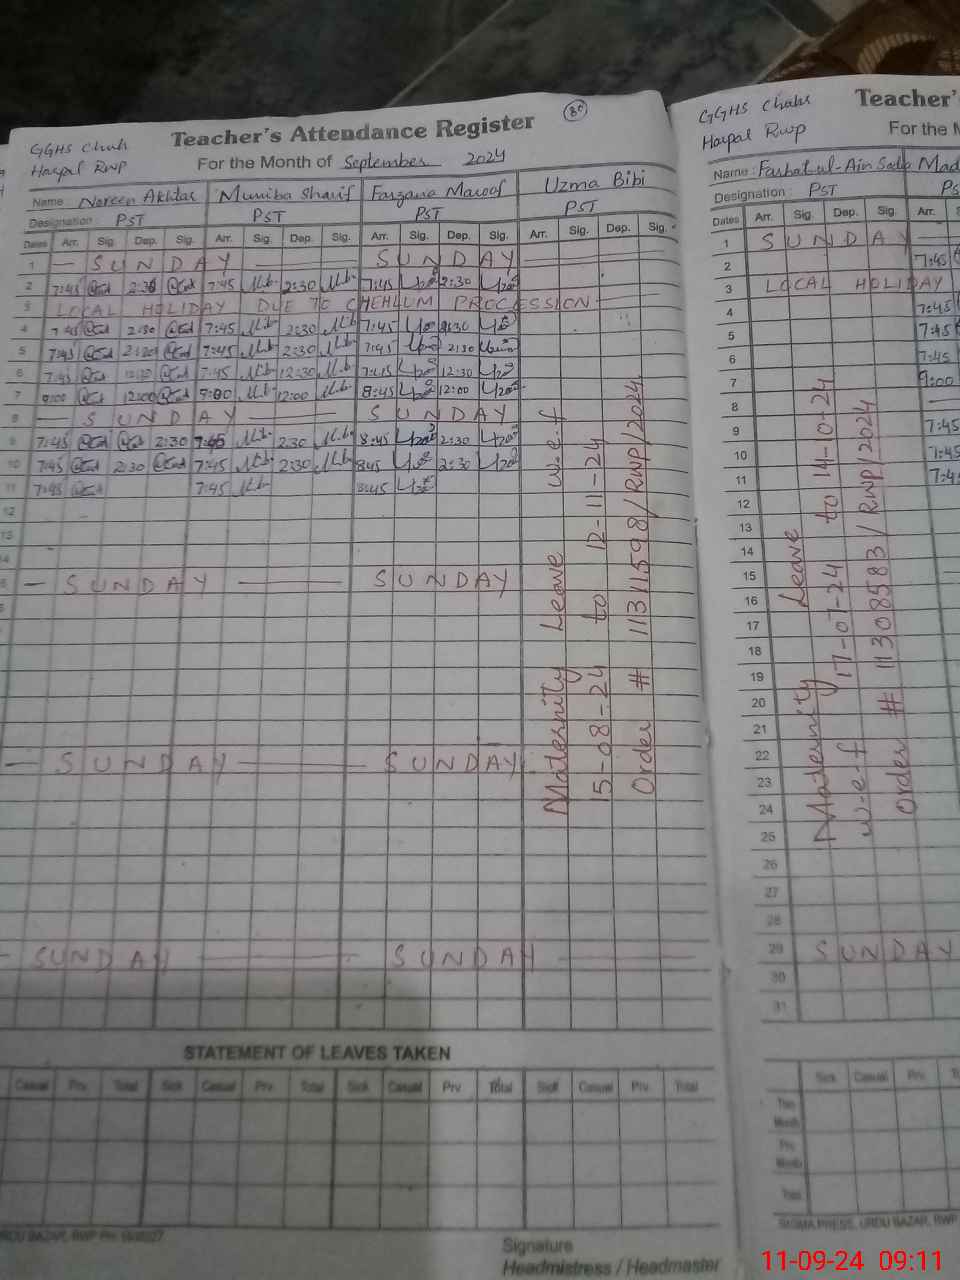 GGHS Chah
Harpal RWP
Teacher's Attendance Register
For the Month of September 2024
Name : Noreen Akhtar Muniba Sharif Farzana Maroof Uzma Bibi
Designation : PST PST PST PST
Dates Arr. Sig. Dep. Sig. Arr. Sig. Dep. Sig. Arr. Sig. Dep. Sig. Arr. Sig. Dep. Sig.
1 — SUNDAY — SUNDAY
2 7:45 2:30 7:45 2:30 7:45 2:30
3 LOCAL HOLIDAY DUE TO CHEHLUM PROCESSION
4 7:45 2:30 7:45 2:30 7:45 2:30
5 7:45 2:30 7:45 2:30 7:45 2:30
6 7:45 12:30 7:45 12:30 7:45 12:30
7 9:00 12:00 9:00 12:00 8:45 12:00
8 — SUNDAY — SUNDAY
9 7:45 2:30 7:45 2:30 8:45 2:30
10 7:45 2:30 7:45 2:30 8:45 2:30
11 7:45 7:45 8:45
12
13
— SUNDAY — SUNDAY
— SUNDAY — SUNDAY
— SUNDAY — SUNDAY —
Maternity Leave w-e-f
15-08-24 to 12-11-24
Order # 11311598/RWP/2024
STATEMENT OF LEAVES TAKEN
Casual Prv. Total Sick Casual Prv. Total Sick Casual Prv Total Sick Casual Prv Total
Signature
Headmistress / Headmaster
GGHS Chah
Harpal RWP
Teacher'
For the M
Name : Farhat-ul-Ain
Designation : PST
Dates Arr. Sig. Dep. Sig. Arr.
1 SUNDAY
2 7:45
3 LOCAL HOLIDAY
4 7:45
5 7:45
6 7:45
7 9:00
8
9 7:45
10 7:45
11 7:4
12
13
14
15
16
17
18
19
20
21
22
23
24
25
26
27
28
29 SUNDAY
30
31
Maternity Leave
w-e-f 17-07-24 to 14-10-24
Order # 11308583/RWP/2024
Sick Casual Prv.
This Month
Prv. Month
Total
SIGMA PRESS, URDU BAZAR, RWP
11-09-24 09:11